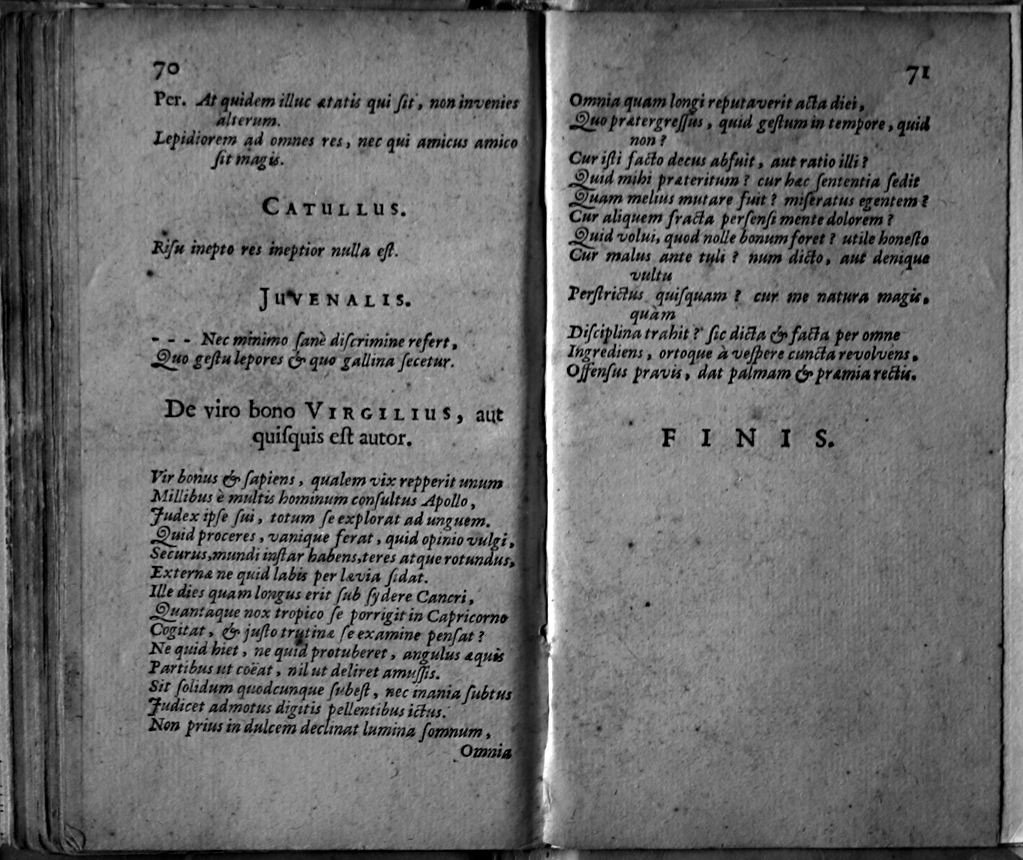 70
Per. At quidem illuc ætatis qui ſit, non invenies
alterum.
Lepidiorem ad omnes res, nec qui amicus amico
ſit magis.
CATULLUS.
Riſu inepto res ineptior nulla eſt.
JUVENALIS.
- - - Nec minimo ſanè diſcrimine refert,
Quo geſtu lepores & quo gallina ſecetur.
De viro bono VIRGILIUS, aut
quiſquis eſt autor.
Vir bonus & ſapiens, qualem vix repperit unum
Millibus è multis hominum conſultus Apollo,
Judex ipſe ſui, totum ſe explorat ad unguem.
Quid proceres, vanique ferat, quid opinio vulgi,
Securus, mundi inſtar habens, teres atque rotundus,
Externæ ne quid labis per lævia ſidat.
Ille dies quam longus erit ſub ſydere Cancri,
Quantaque nox tropico ſe porrigit in Capricorno
Cogitat, & juſto trutinæ ſe examine penſat?
Ne quid hiet, ne quid protuberet, angulus æquis
Partibus ut coëat, nil ut deliret amuſſis.
Sit ſolidum quodcunque ſubeſt, nec inania ſubtus
Judicet admotus digitis pellentibus ictus.
Non prius in dulcem declinat lumina ſomnum,
Omnia
71
Omnia quam longi reputaverit acta diei,
Quo prætergreſſus, quid geſtum in tempore, quid
non?
Cur iſti facto decus abfuit, aut ratio illi?
Quid mihi præteritum? cur hæc ſententia ſedit
Quam melius mutare fuit? miſeratus egentem?
Cur aliquem fracta perſenſi mente dolorem?
Quid volui, quod nolle bonum foret? utile honeſto
Cur malus ante tuli? num dicto, aut denique
vultu
Perſtrictus quiſquam? cur me natura magis,
quàm
Diſciplina trahit? ſic dicta & facta per omne
Ingrediens, ortoque à veſpere cuncta revolvens,
Offenſus pravis, dat palmam & præmia rectis.
FINIS.